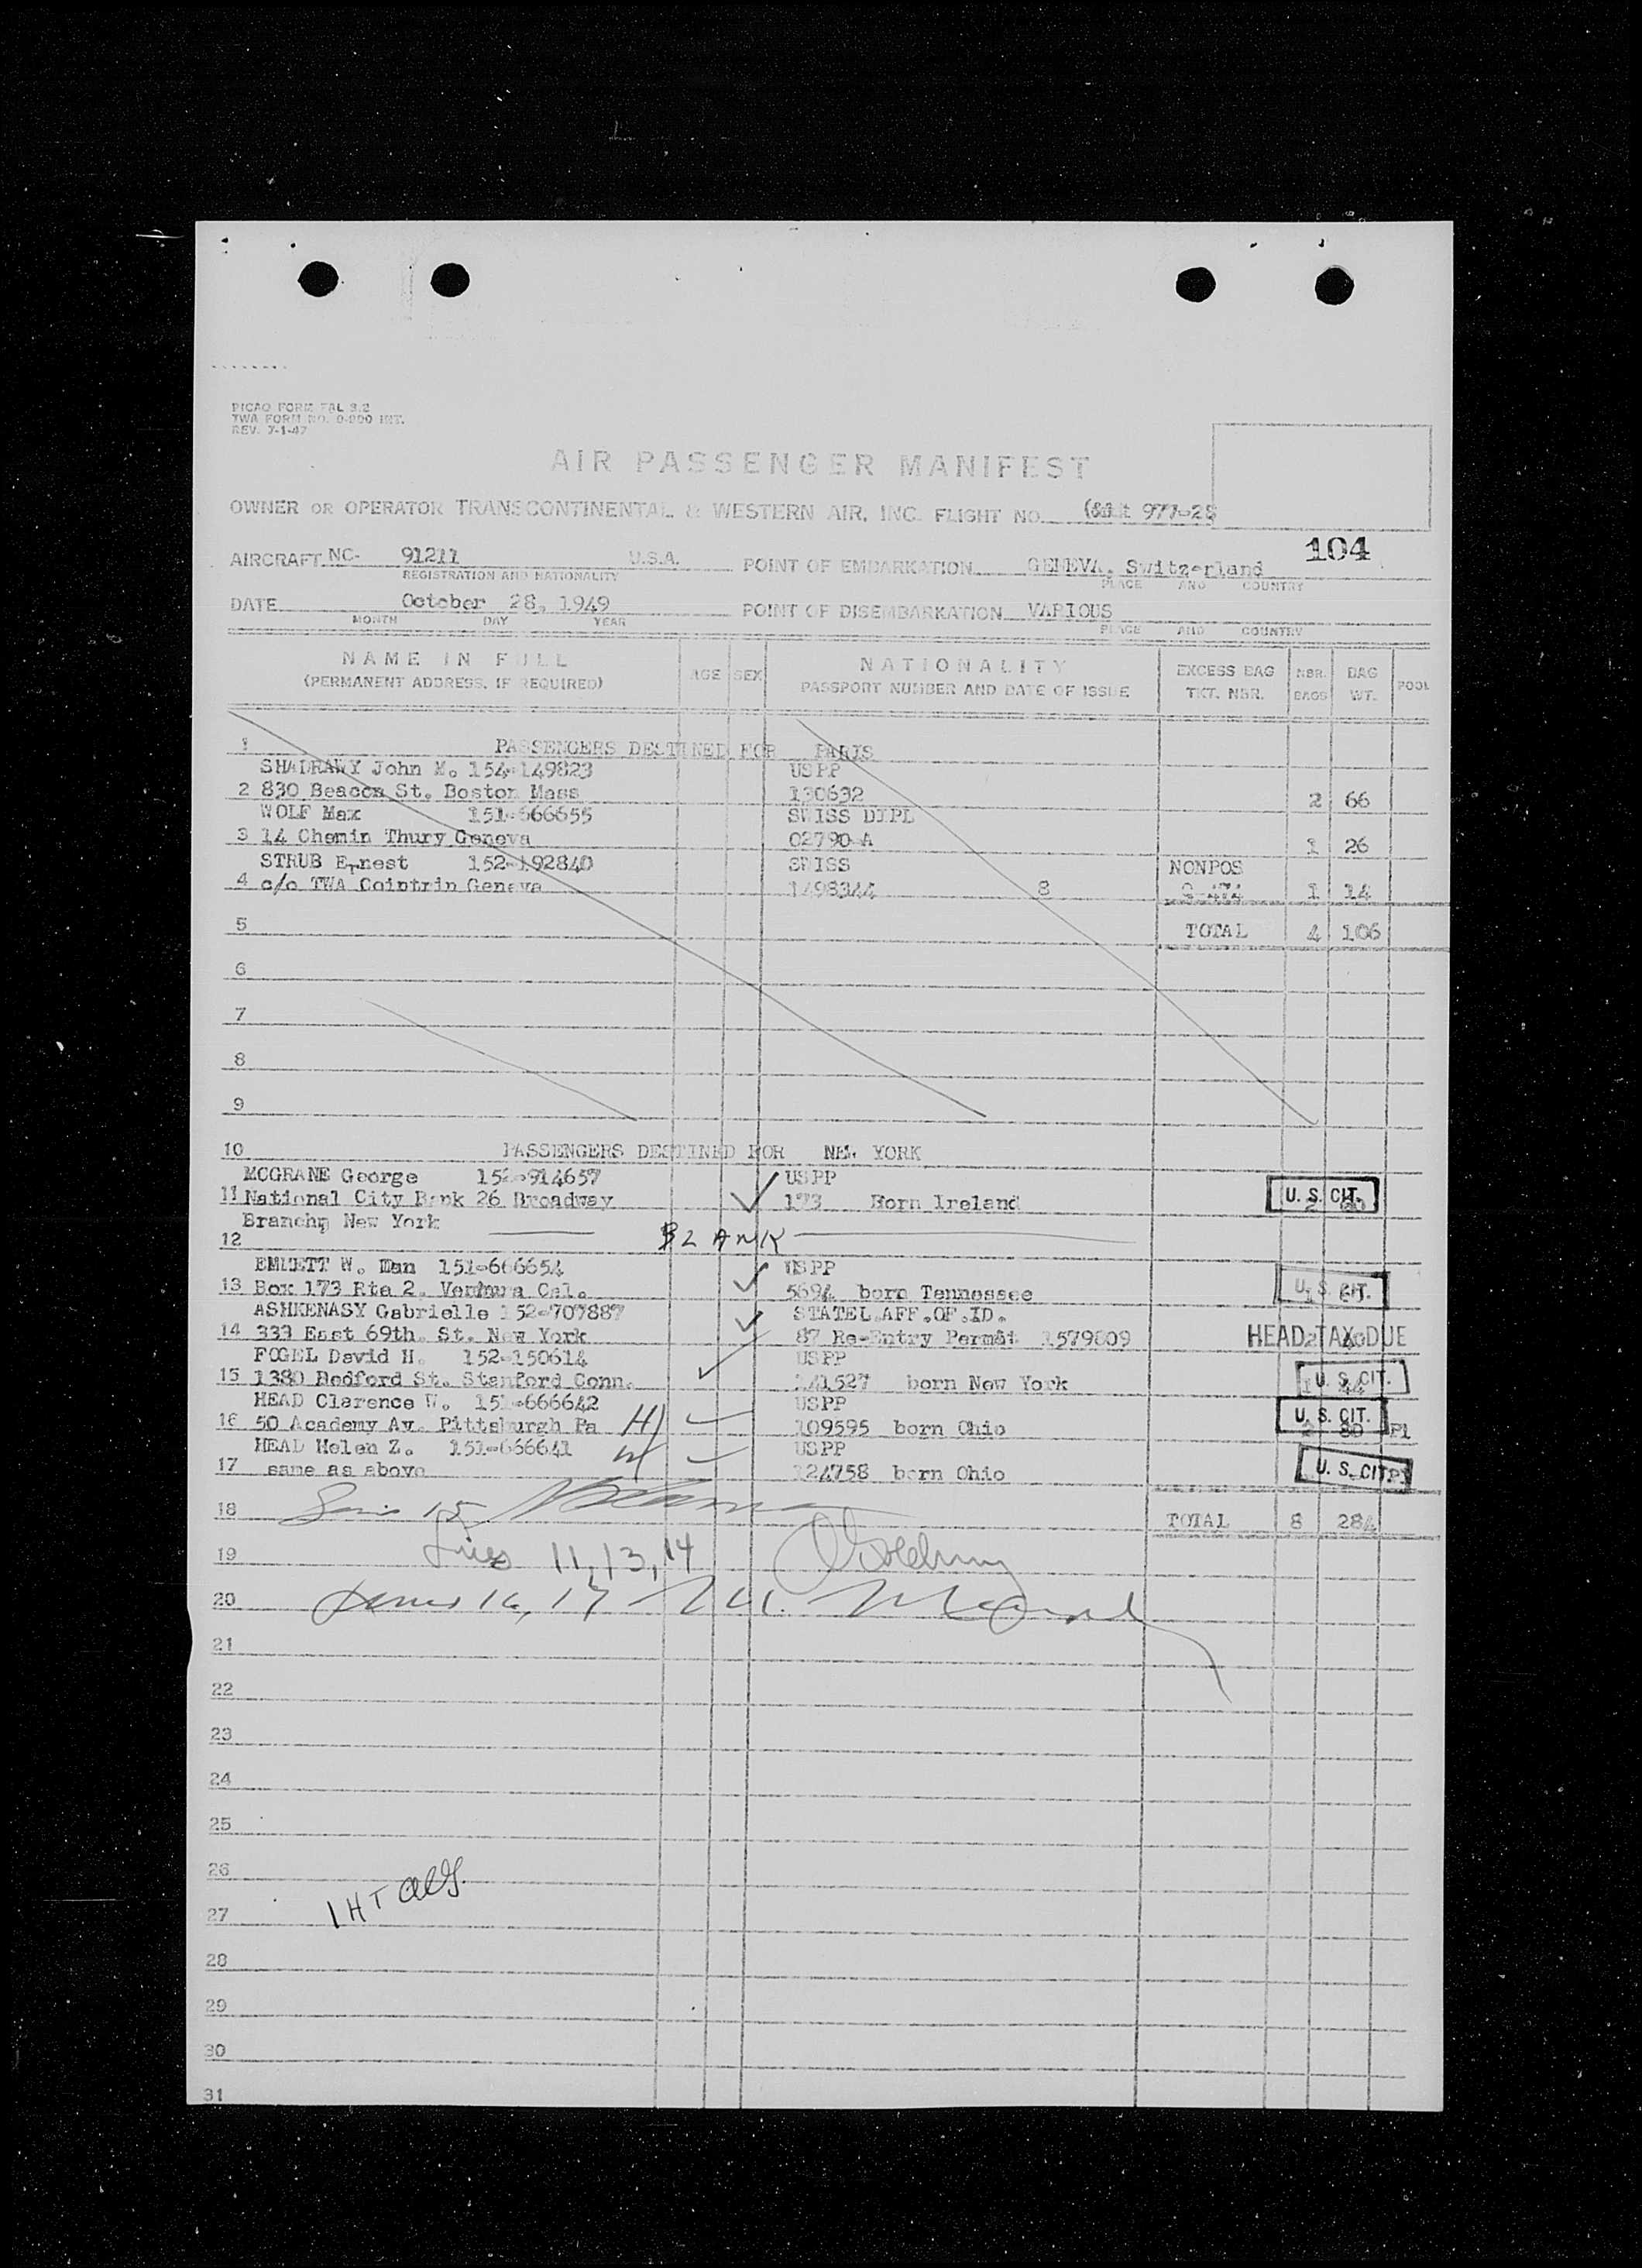 PICAO FORM FAL 3.2
TWA FORM NO. 0-800 INT.
REV. 7-1-47
AIR PASSENGER MANIFEST
OWNER OR OPERATOR TRANSCONTINENTAL & WESTERN AIR, INC. FLIGHT NO. 977-28
104
AIRCRAFT NC- 91211 U.S.A. POINT OF EMBARKATION GENEVA. Switzerland
REGISTRATION AND NATIONALITY PLACE AND COUNTRY
DATE October 28, 1949 POINT OF DISEMBARKATION VARIOUS
MONTH DAY YEAR PLACE AND COUNTRY
NAME IN FULL AGE SEX NATIONALITY EXCESS BAG NBR. BAG POOL
(PERMANENT ADDRESS, IF REQUIRED) PASSPORT NUMBER AND DATE OF ISSUE TKT. NBR. BAGS WT.
1 PASSENGERS DESTINED FOR PARIS
SHADRAWY John M. 154-149823 USPP
2 830 Beacon St. Boston Mass 130632 2 66
WOLF Max 151-666655 SWISS DIPL
3 14 Chemin Thury Geneva 02790-A 1 26
STRUB Ernest 152-192840 SWISS NONPOS
4 c/o TWA Cointrin Geneva 1498344 8 1 14
5 TOTAL 4 106
6
7
8
9
10 PASSENGERS DESTINED FOR NEW YORK
MCGRANE George 914657 USPP
11 National City Bank 26 Broadway 173 Born Ireland U. S. CIT.
Branch, New York
12 BLANK
EMMETT W. Dan 151-666654 USPP
13 Box 173 Rte 2. Ventura Cal. 5694 born Tennessee U. S. CIT.
ASHKENASY Gabrielle 152-707887 STATEL.AFF.OF.ID.
14 333 East 69th. St. New York 87 Re-Entry Permit 1579809 HEAD TAX DUE
FOGEL David H. 152-150614 USPP
15 1380 Bedford St. Stamford Conn. 41527 born New York U. S. CIT.
HEAD Clarence W. 151-666642 USPP
16 50 Academy Av. Pittsburgh Pa H 109595 born Ohio U. S. CIT. 2 80 P1
HEAD Helen Z. 151-666641 W USPP
17 same as above 124758 born Ohio U. S. CIT.
18 Line 15 TOTAL 8 284
19 Lines 11, 13, 14
20 Lines 16, 17
21
22
23
24
25
26
27 1 HT
28
29
30
31